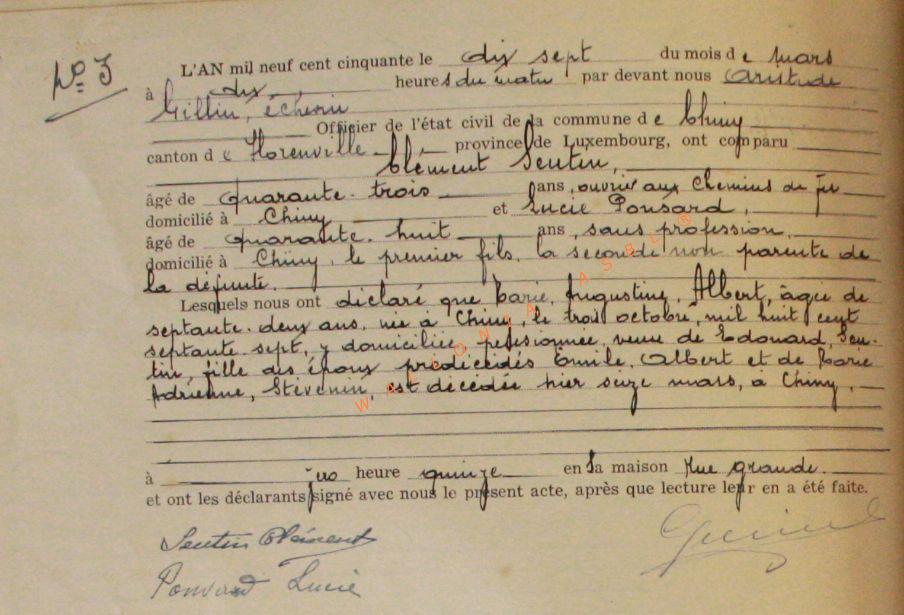 No 3
L'AN mil neuf cent cinquante le dix sept du mois de mars
à dix, heures du matin par devant nous Aristide
Gillin, échevin
Officier de l'état civil de la commune de Chiny
canton de Florenville, province de Luxembourg, ont comparu
Clément Sentin,
âgé de quarante-trois ans, ouvrier aux Chemins de fer
domicilié à Chiny et Lucie Ponsard,
âgé de quarante-huit ans, sans profession,
domicilié à Chiny, le premier fils, la seconde non parente de
la défunte.
Lesquels nous ont déclaré que Marie, Augustine, Albert, âgée de
septante-deux ans, née à Chiny, le trois octobre, mil huit cent
septante-sept, y domiciliée, pensionnée, veuve de Edouard, Sen-
tin, fille des époux prédécédés Emile, Albert et de Marie
Adrienne, Stévenin, est décédée hier seize mars, à Chiny,
à heure quinze en sa maison Rue grande.
et ont les déclarants signé avec nous le présent acte, après que lecture leur en a été faite.
Sentin Clément
Ponsard Lucie
WALLONIA ASBL ®